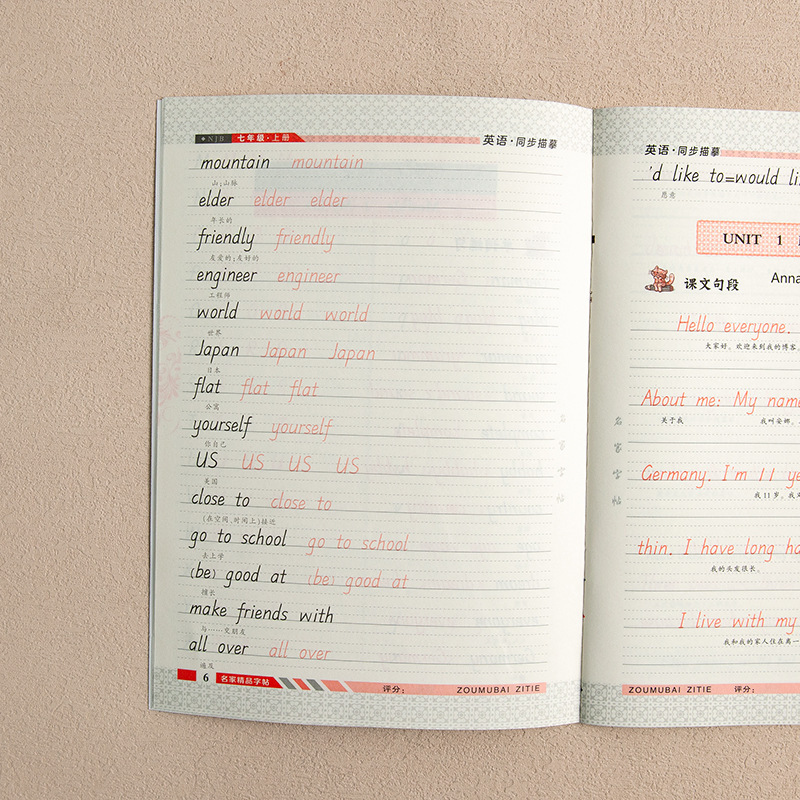 NJB 七年级·上册 英语·同步描摹
mountain mountain
山;山脉
elder elder elder
年长的
friendly friendly
友爱的;友好的
engineer engineer
工程师
world world world
世界
Japan Japan Japan
日本
flat flat flat
公寓
yourself yourself
你自己
US US US US
美国
close to close to
(在空间、时间上)接近
go to school go to school
去上学
(be) good at (be) good at
擅长
make friends with
与……交朋友
all over all over
遍及
6 名家精品字帖 评分: ZOUMUBAI ZITIE
名家字帖
英语·同步描摹
'd like to=would li
愿意
UNIT 1
课文句段 Anna
Hello everyone.
大家好。欢迎来到我的博客。
About me: My name
关于我 我叫安娜。
Germany. I'm 11 ye
我11岁,我来
thin. I have long ha
我的头发很长。
I live with my
我和我的家人住在离一
名家字帖
ZOUMUBAI ZITIE 评分: